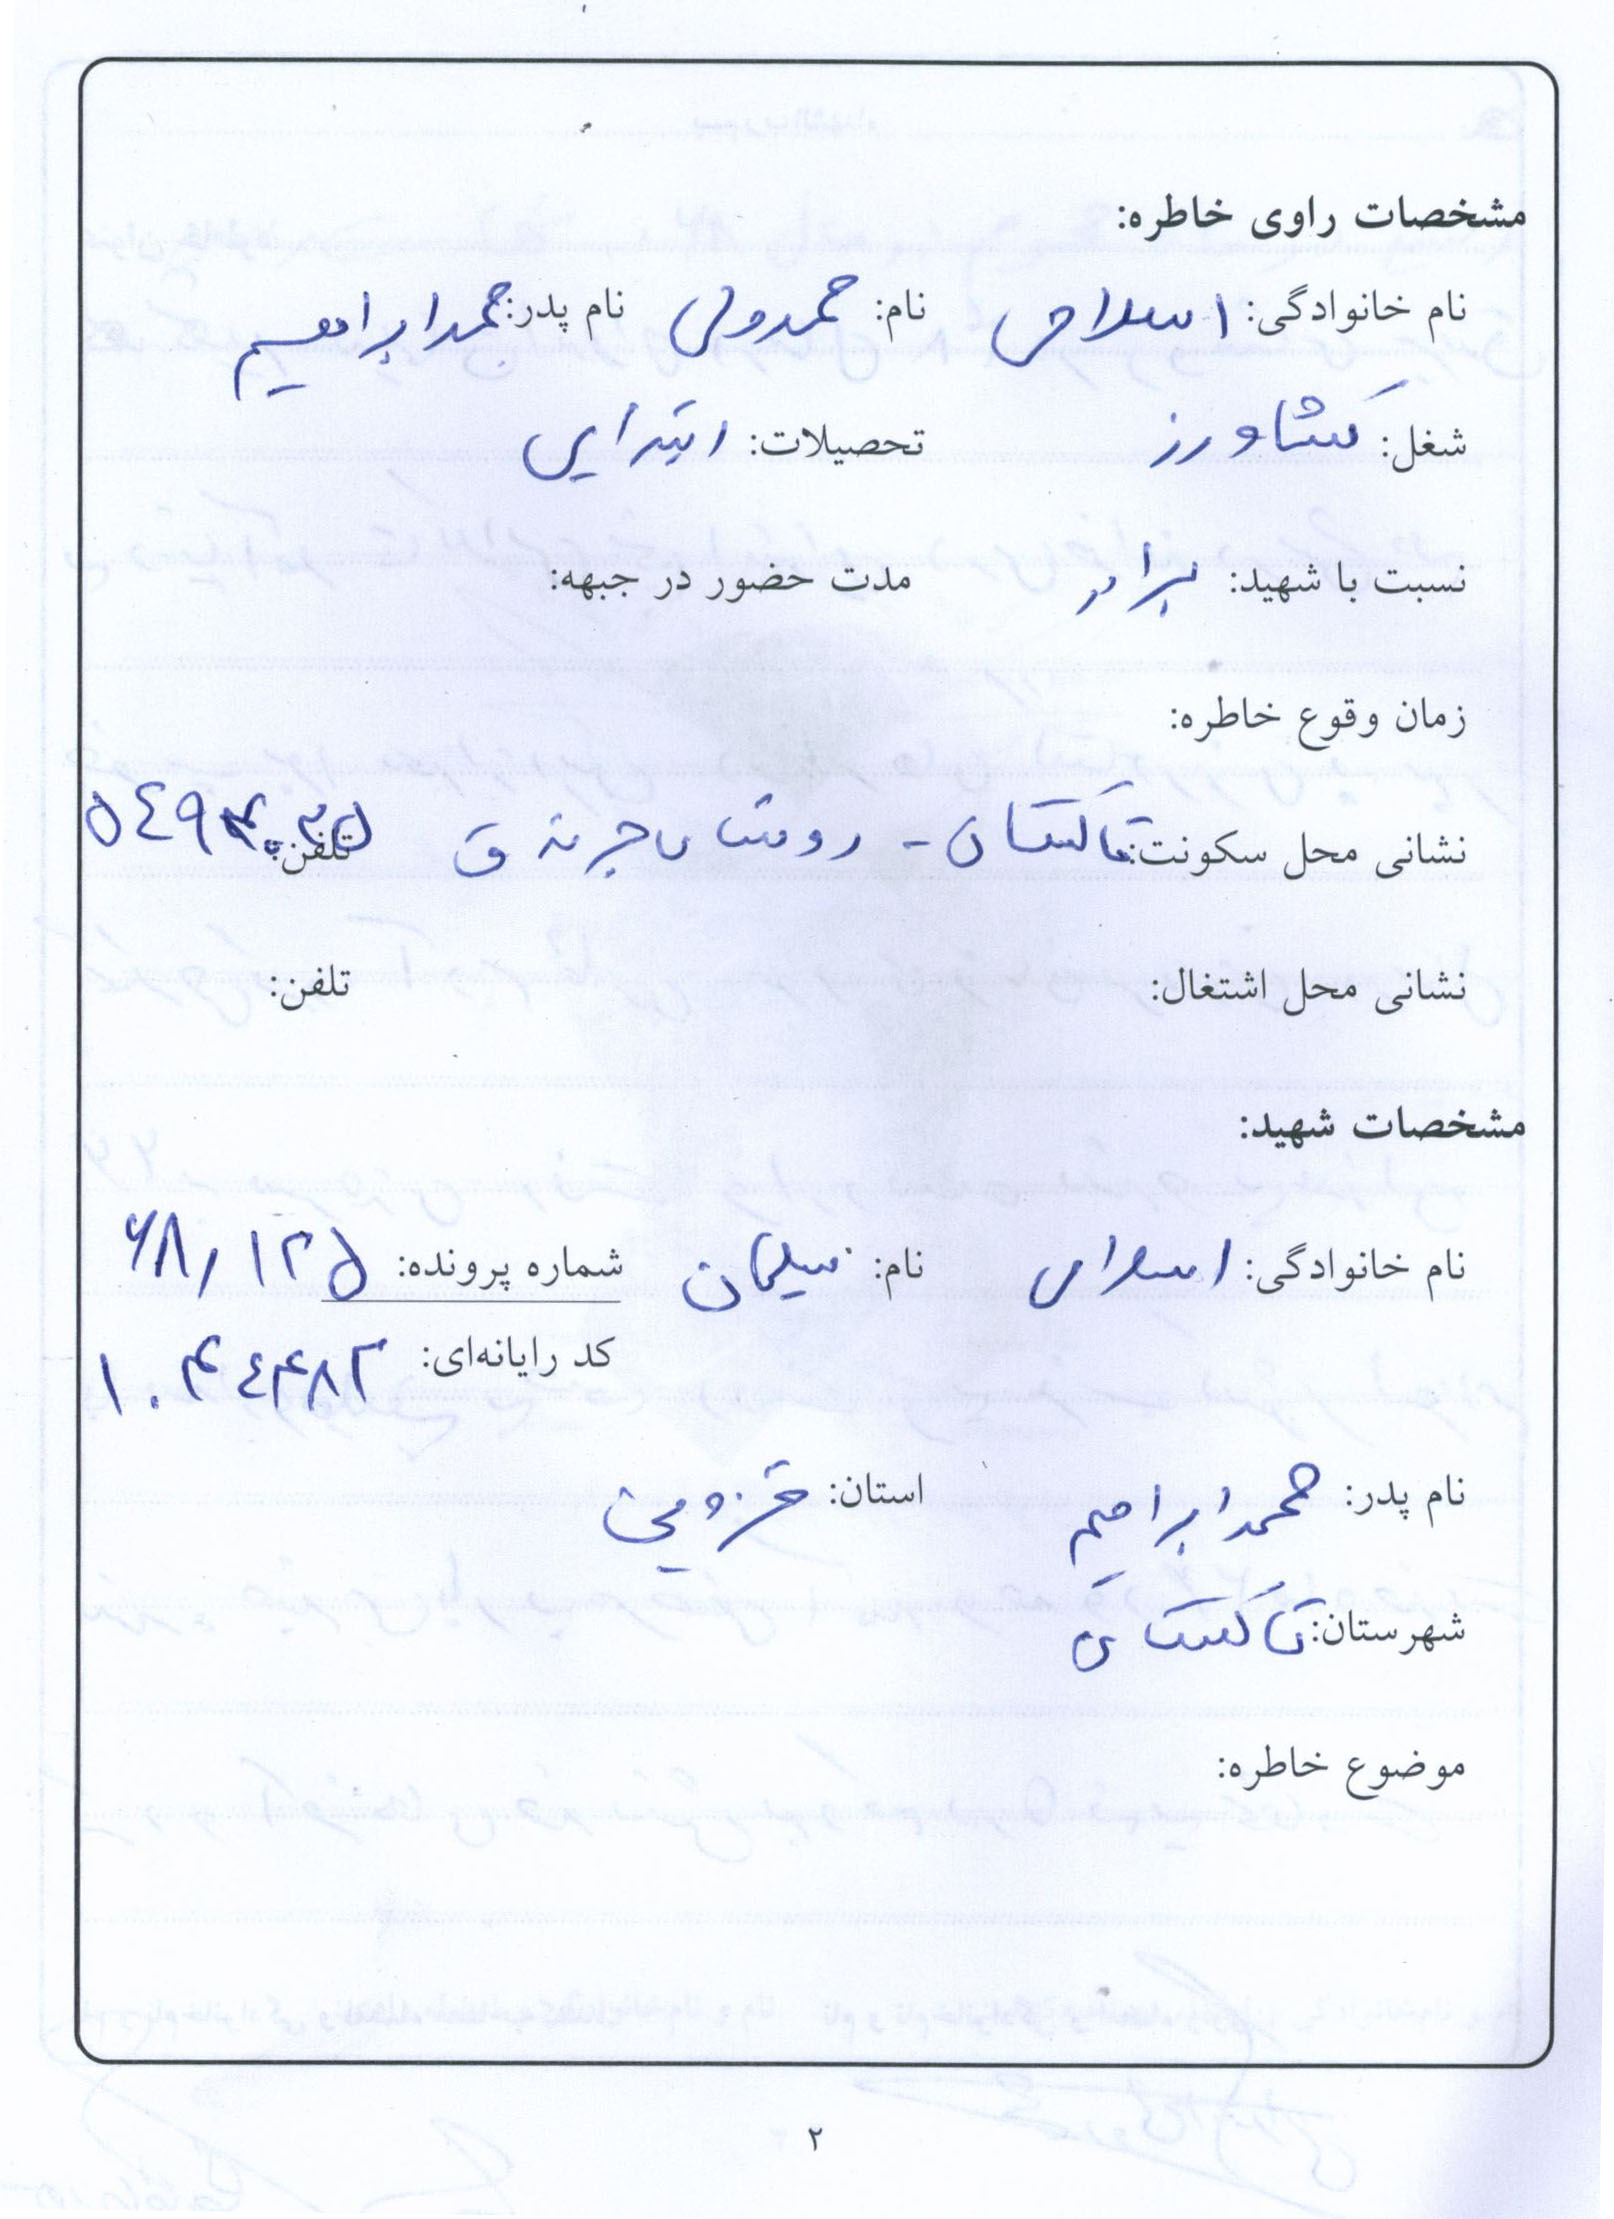 مشخصات راوی خاطره:
نام خانوادگی: اسلامی نام: محمدولی نام پدر: محمدابراهیم
شغل: کشاورز تحصیلات: ابتدایی
نسبت با شهید: برادر مدت حضور در جبهه:
زمان وقوع خاطره:
نشانی محل سکونت: تاکستان - روستای جرندق تلفن:
نشانی محل اشتغال: تلفن:
مشخصات شهید:
نام خانوادگی: اسلامی نام: سلیمان شماره پرونده: ۶۸/۱۲۵
کد رایانه‌ای: ۱۰۴۴۴۸۲
نام پدر: محمدابراهیم استان: قزوین
شهرستان: تاکستان
موضوع خاطره:
۲